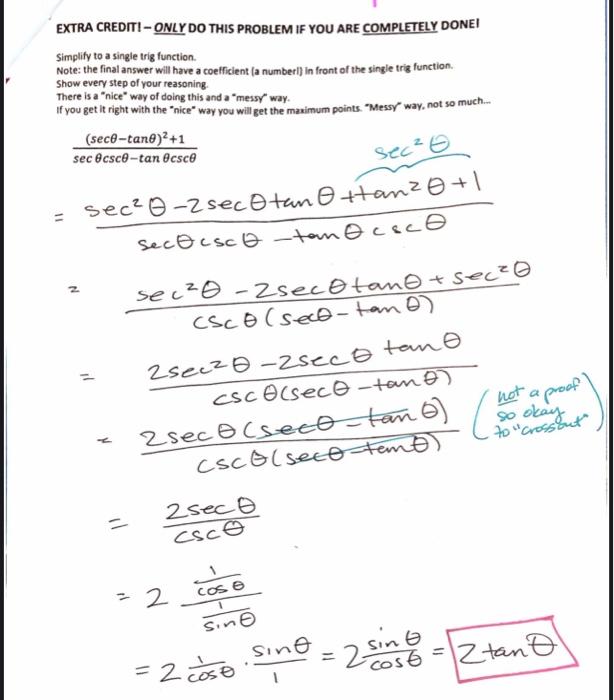 EXTRA CREDIT! – ONLY DO THIS PROBLEM IF YOU ARE COMPLETELY DONE!
Simplify to a single trig function.
Note: the final answer will have a coefficient (a number!) in front of the single trig function.
Show every step of your reasoning.
There is a "nice" way of doing this and a "messy" way.
If you get it right with the "nice" way you will get the maximum points. "Messy" way, not so much...
(secθ−tanθ)²+1
sec θcscθ−tan θcscθ
sec²θ
= sec²θ -2secθtanθ +tan²θ +1
secθcscθ -tanθcscθ
= sec²θ -2secθtanθ + sec²θ
cscθ(secθ-tanθ)
= 2sec²θ -2secθ tanθ
cscθ(secθ-tanθ)
= 2secθ(secθ-tanθ)
cscθ(secθ-tanθ)
(not a proof
so okay
to "cross out")
= 2secθ
cscθ
= 2 1
cosθ
1
sinθ
= 2 1/cosθ · sinθ/1 = 2 sinθ/cosθ = 2tanθ